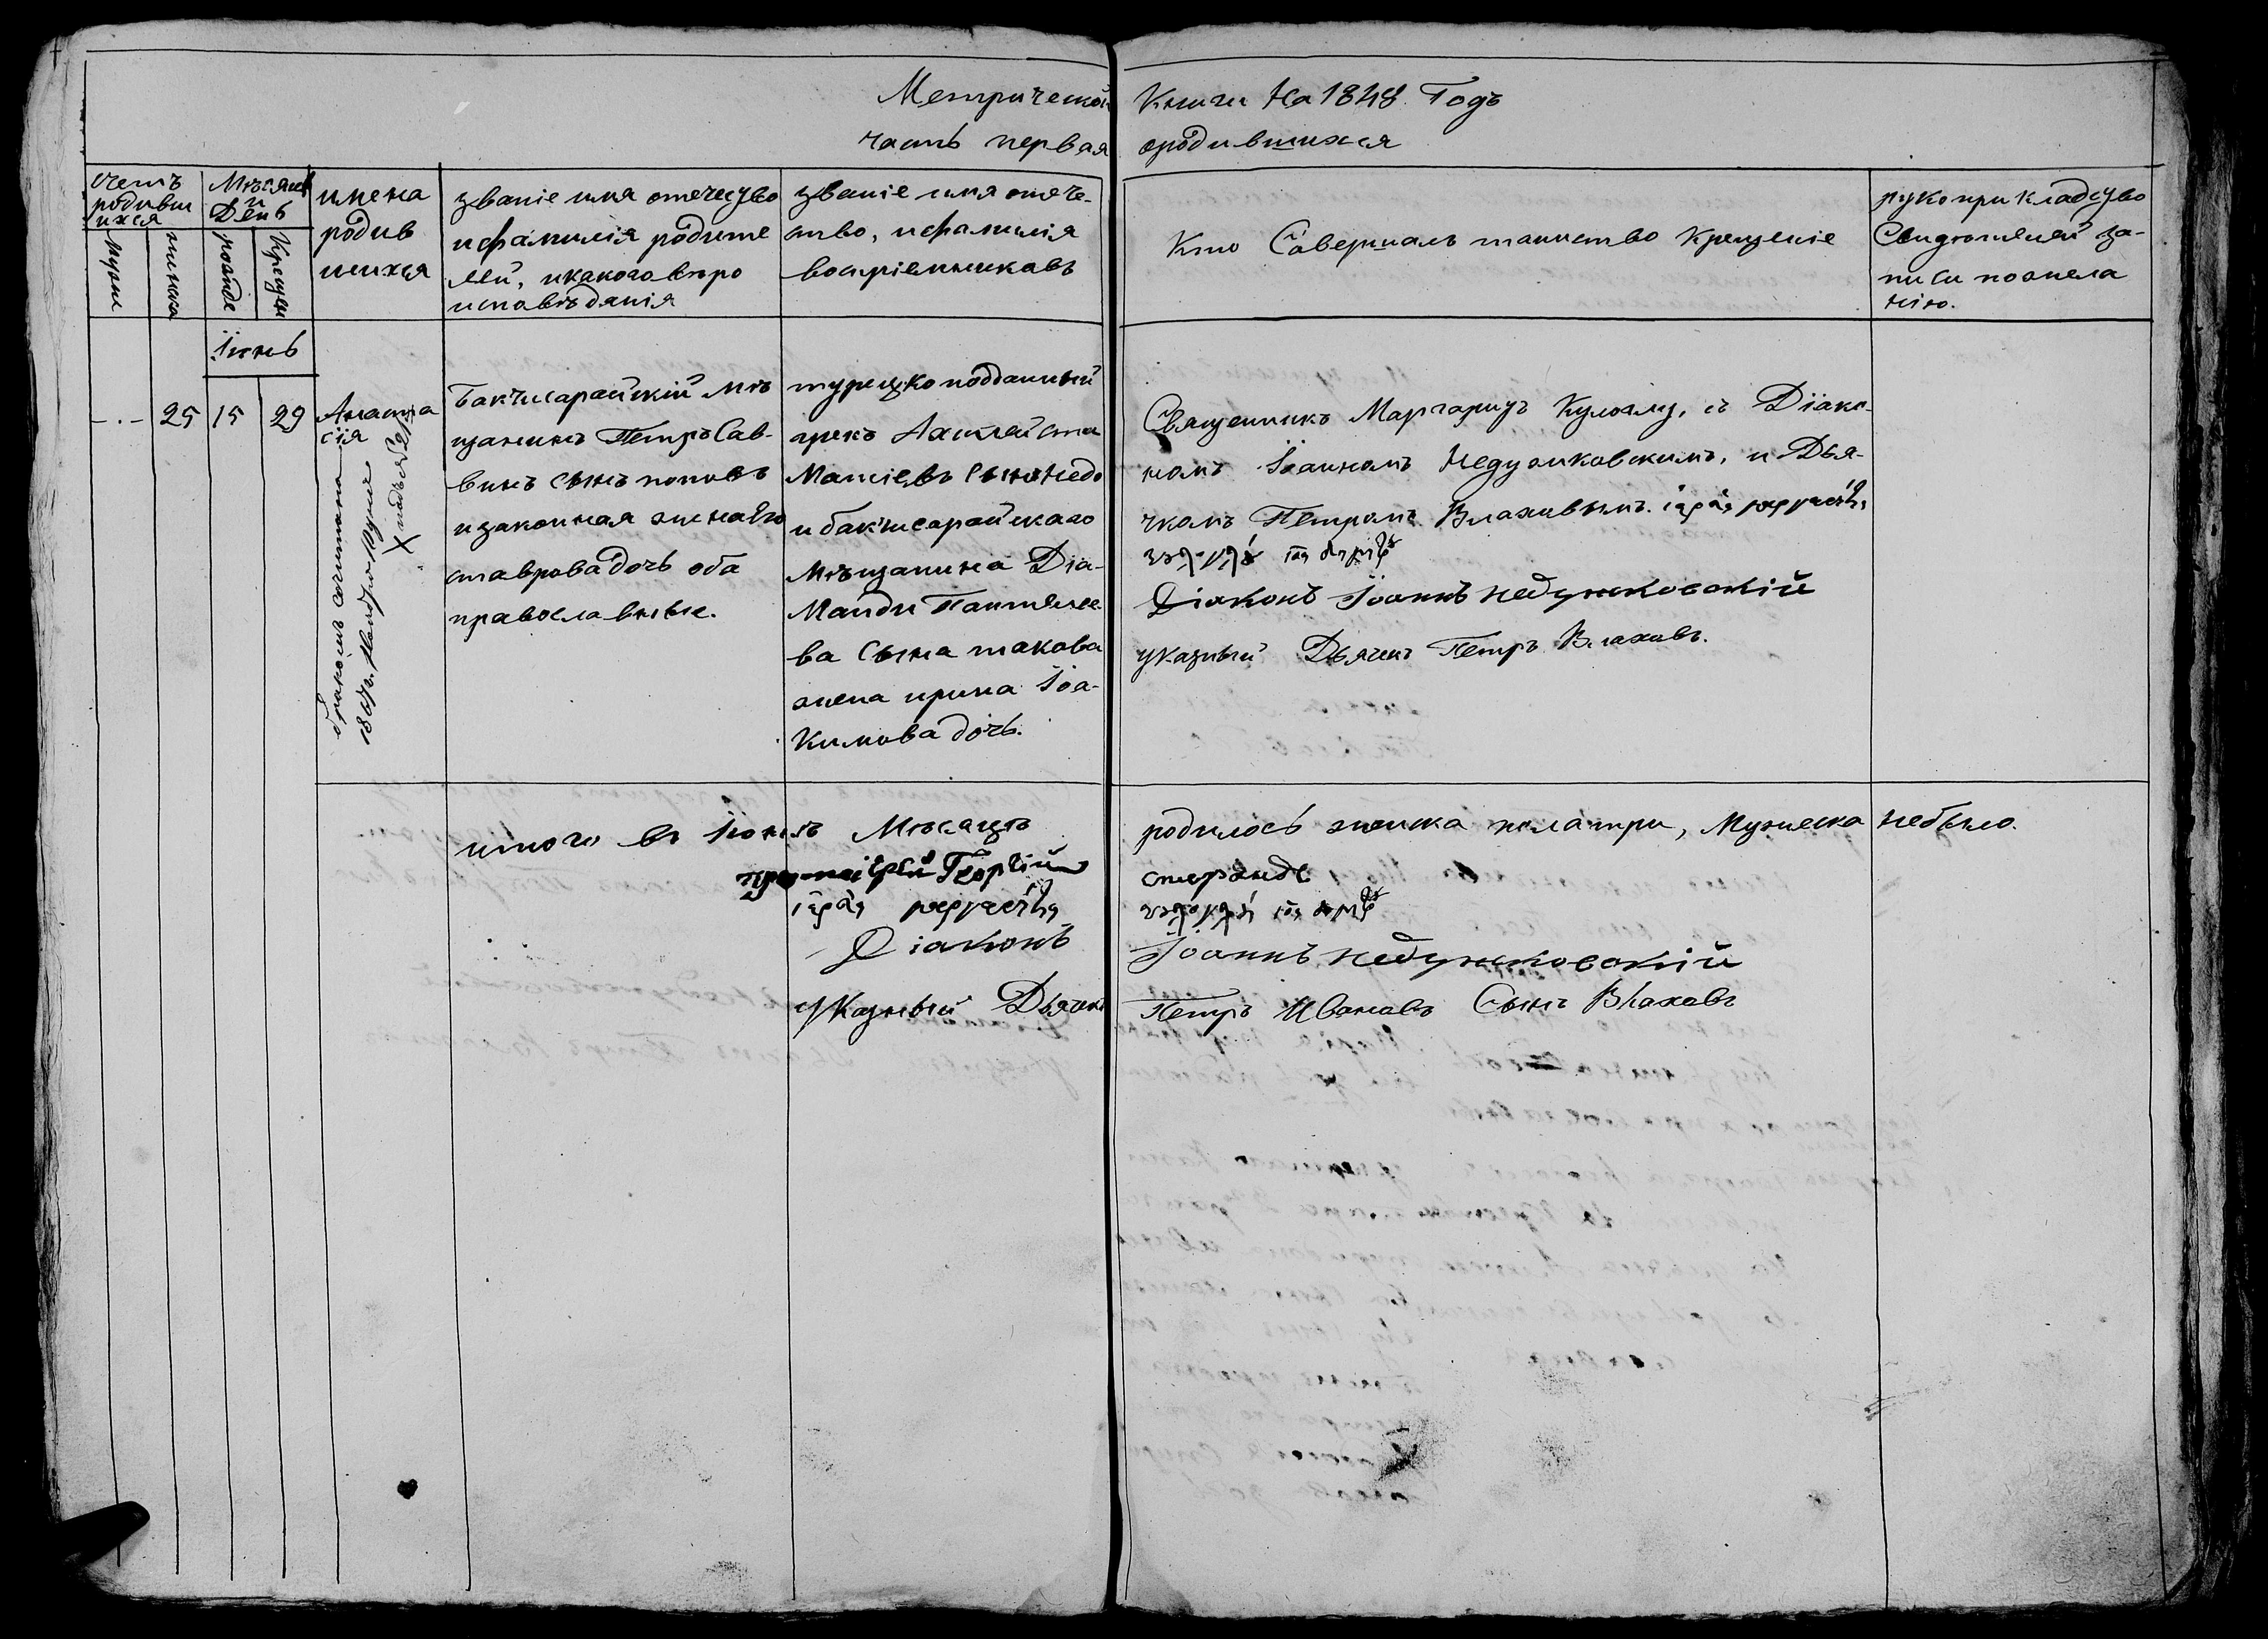 Метрической Книги На 1848 Годъ
часть первая ородившихся
счетъ родивш ихся
Мужес
женска
Мѣсяцъ и День
рожде
Крещен
имена родив шихся
званіе имя отечество
ифамилія родите
лей, икакого вѣро
исповѣданія
званіе имя отече-
ство, ифамилія
воспріемниковъ
Кто Савершалъ таинство Крещеніе
рукоприкладство
Свидѣтелей за-
писи пожела
нію.
Іюнь
-.- 25 15 29
Анаста
сія
бракомъ сочитана
Бакчисарайскій мѣ
щанинъ Петръ Сав-
винъ сынъ поповъ
изаконная женаЕго
ставрова дочь оба
православные.
турецкоподданный
грекъ
сынъ
и бакчисарайскаго
Мѣщанина Діа-
Манди Пантелее
ва Сына такова
жена ирина Іоа-
Кимова дочь.
Священникъ Маргаритъ съ Діако-
номъ Іоанномъ Недзельковскимъ, и Дья-
чкомъ Петромъ Влаховымъ.
Діаконъ Іоаннъ недзельковскій
указный Дьячекъ Петръ Влаховъ.
итого въ Іюнѣ Мѣсяцѣ родилось женска пола три, Мужеска небыло.
протоіерей Георгій
Діаконъ Іоаннъ недзельковскій
указный Дьячекъ Петръ Ивановъ Сынъ Влаховъ